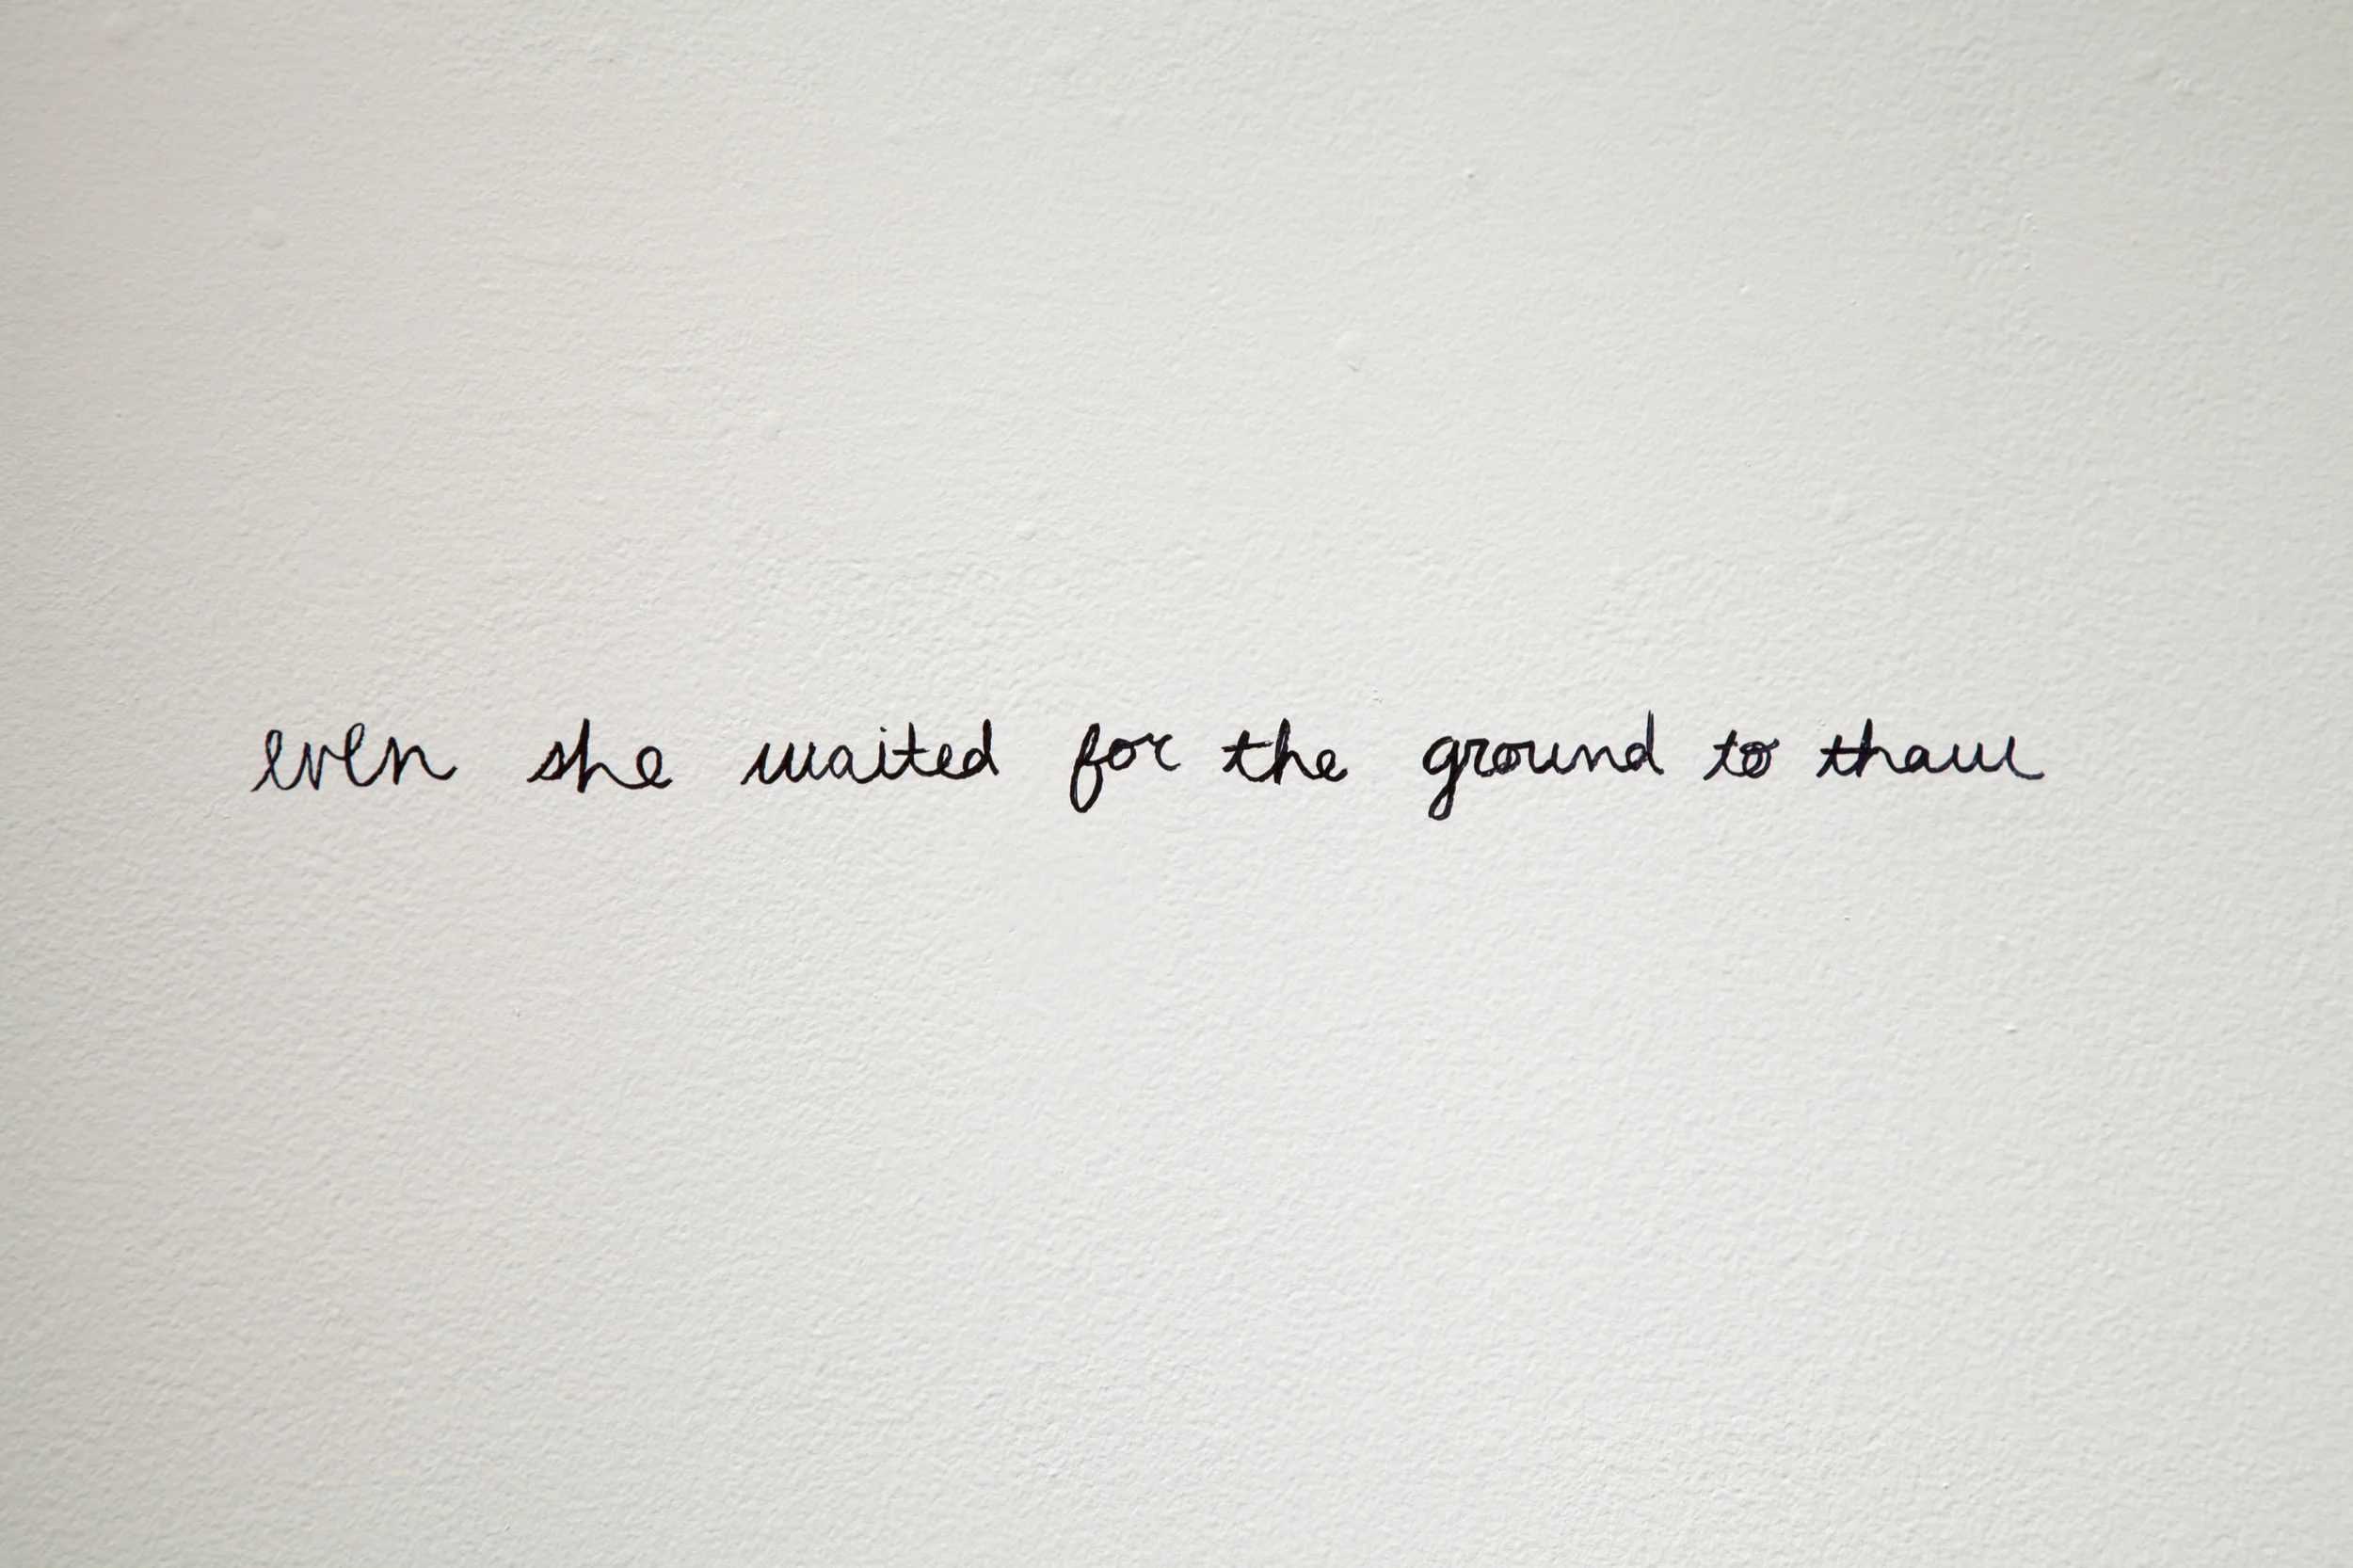 even she waited for the ground to thaw